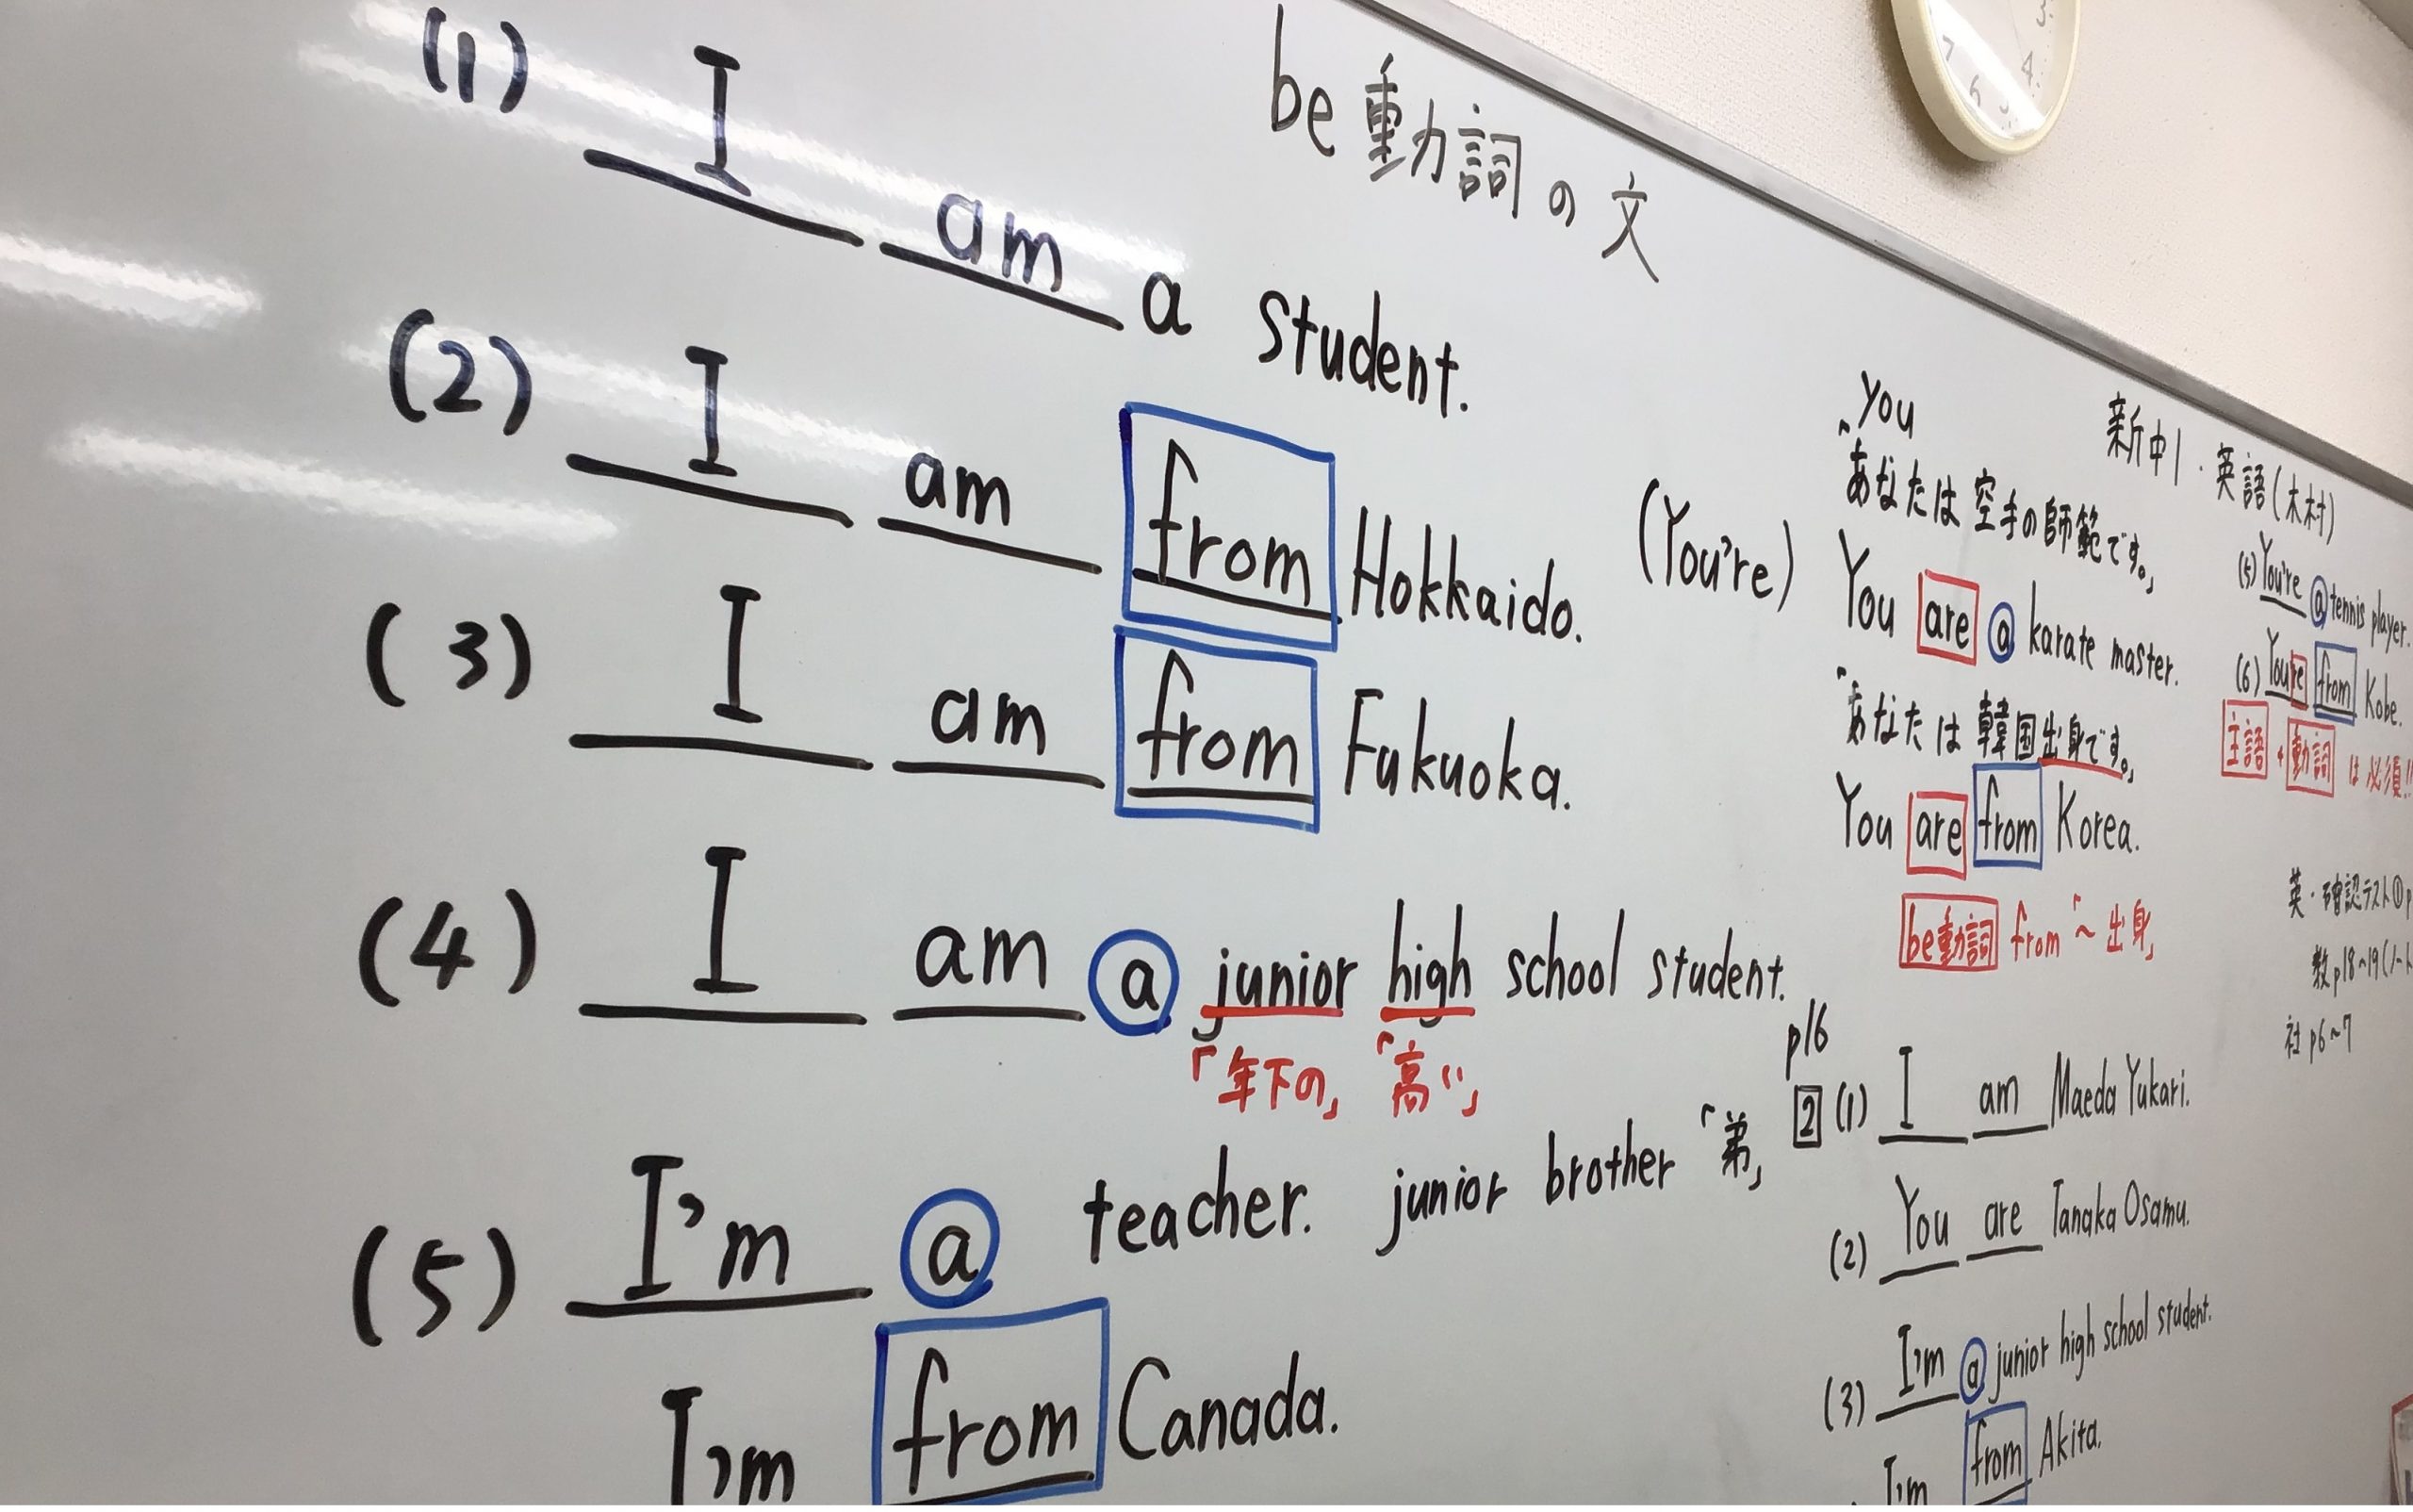 be動詞の文
(1) I am a student.
(2) I am from Hokkaido.
(3) I am from Fukuoka.
(4) I am a junior high school student.
「年下の」「高い」
(5) I'm a teacher. junior brother「弟」
I'm from Canada.
you
「あなたは空手の師範です。」
(You're) You are a karate master.
「あなたは韓国出身です。」
You are from Korea.
be動詞 from「~出身」
p16
2 (1) I am Maeda Yukari.
(2) You are Tanaka Osamu.
(3) I'm a junior high school student.
I'm from Akita.
新中1・英語(木村)
(5) You're a tennis player.
(6) You're from Kobe.
主語+動詞は必須!!
英・確認テスト① p
数p18~19(ノート
社p6~7
3
4
5
6
7